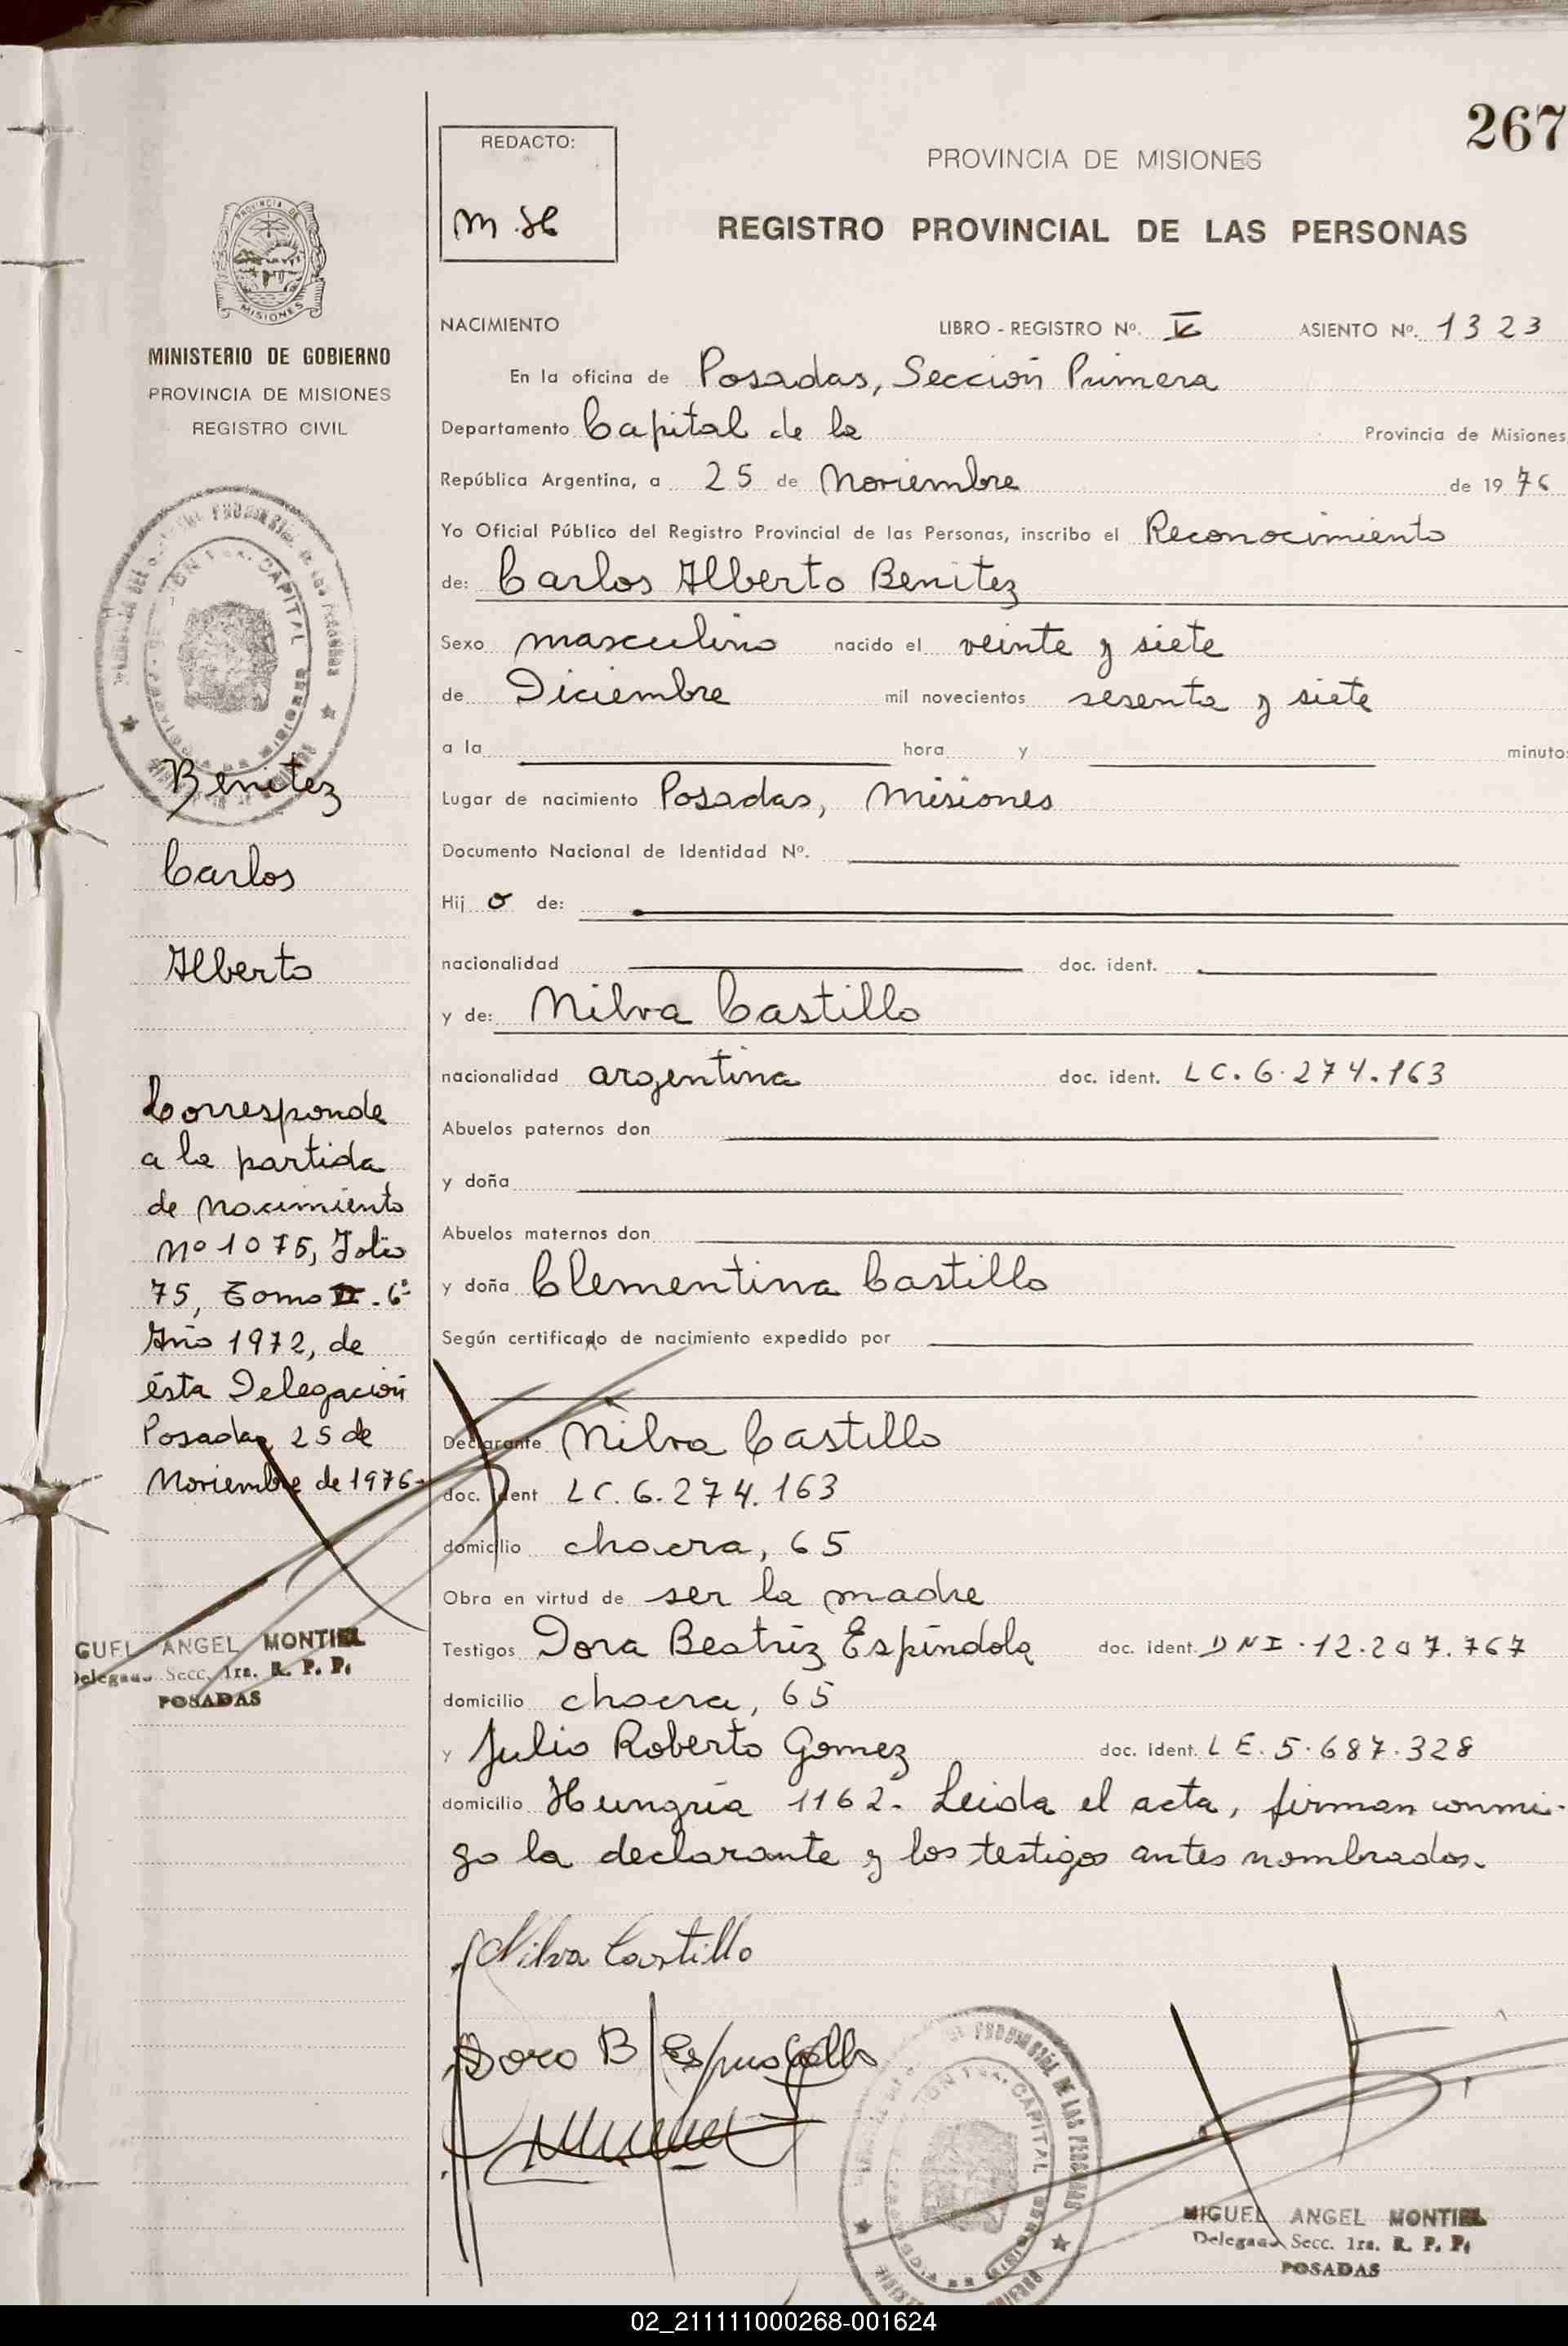 267
REDACTO:
M.H
PROVINCIA DE MISIONES
REGISTRO PROVINCIAL DE LAS PERSONAS
PROVINCIA DE
MISIONES
MINISTERIO DE GOBIERNO
PROVINCIA DE MISIONES
REGISTRO CIVIL
CAPITAL
Benitez
Carlos
Alberto
Corresponde
a la partida
de Nacimiento
Nº 1075, Folio
75, Tomo II. 6º
Año 1972, de
ésta Delegación
Posadas 25 de
Noviembre de 1976-
GUEL ANGEL MONTIEL
Delegado Secc. 1ra. R. P. P.
POSADAS
NACIMIENTO LIBRO - REGISTRO Nº. ASIENTO Nº. 1323
En la oficina de Posadas, Sección Primera
Departamento Capital de la Provincia de Misiones
República Argentina, a 25 de Noviembre de 1976
Yo Oficial Público del Registro Provincial de las Personas, inscribo el Reconocimiento
de: Carlos Alberto Benitez
Sexo masculino nacido el veinte y siete
de Diciembre mil novecientos sesenta y siete
a la hora y minuto
Lugar de nacimiento Posadas, Misiones
Documento Nacional de Identidad Nº.
Hij o de:
nacionalidad doc. ident.
y de: Nilva Castillo
nacionalidad argentina doc. ident. LC. 6.274.163
Abuelos paternos don
y doña
Abuelos maternos don
y doña Clementina Castillo
Según certificado de nacimiento expedido por
Declarante Nilva Castillo
doc. ident LC. 6.274.163
domicilio chacra, 65
Obra en virtud de ser la madre
Testigos Dora Beatriz Espíndola doc. ident. DNI. 12.207.767
domicilio chacra, 65
y Julio Roberto Gomez doc. ident. LE. 5.687.328
domicilio Hungría 1162. Leida el acta, firman conmi-
go la declarante y los testigos antes nombrados.
Nilva Castillo
CAPITAL
DE LAS PERSONAS
MIGUEL ANGEL MONTIEL
Delegado Secc. 1ra. R. P. P.
POSADAS
02_211111000268-001624